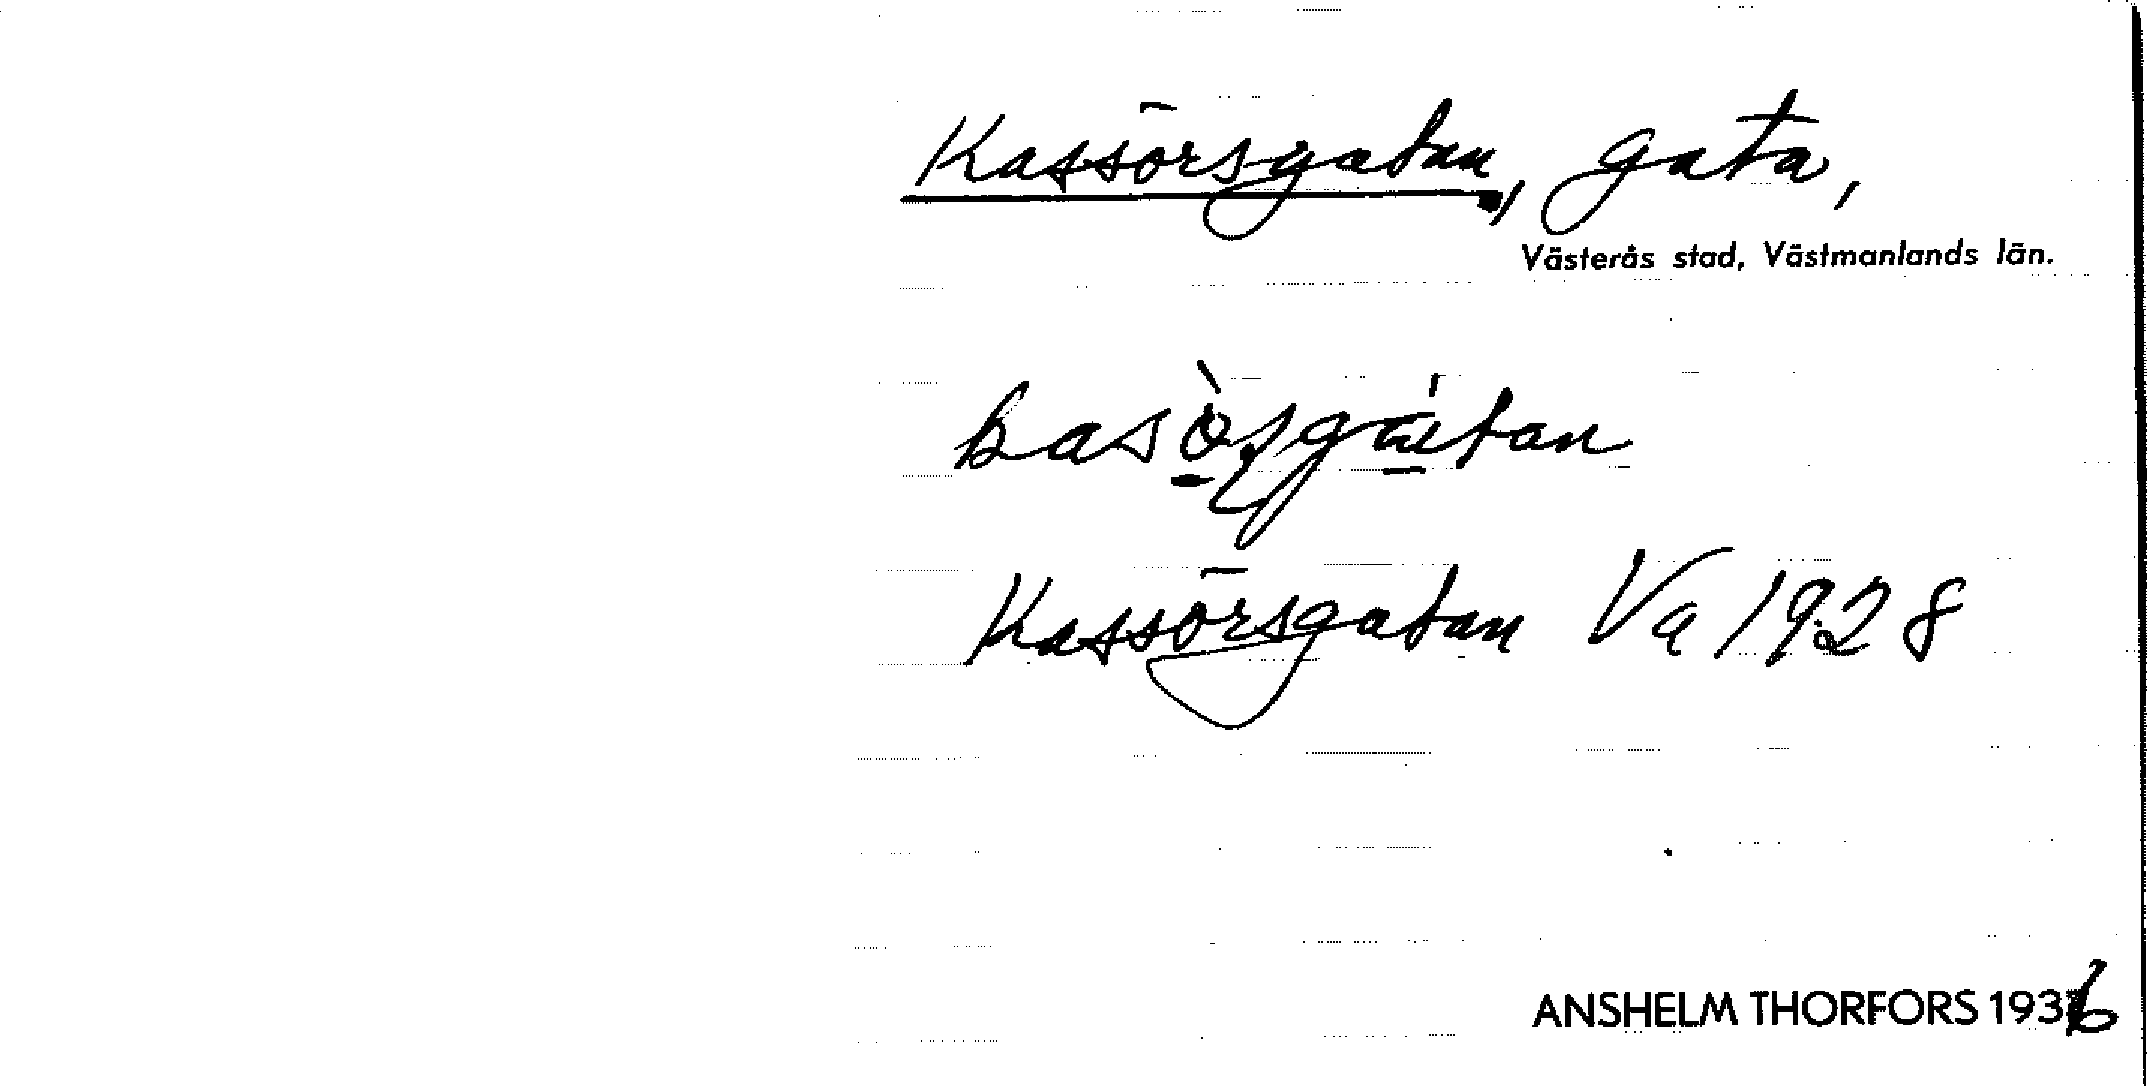 Kassörsgatan, gata,
Västerås stad, Västmanlands län.
kasò̱ʂgá̱tan
Kassörsgatan Va 1928
ANSHELM THORFORS 1936